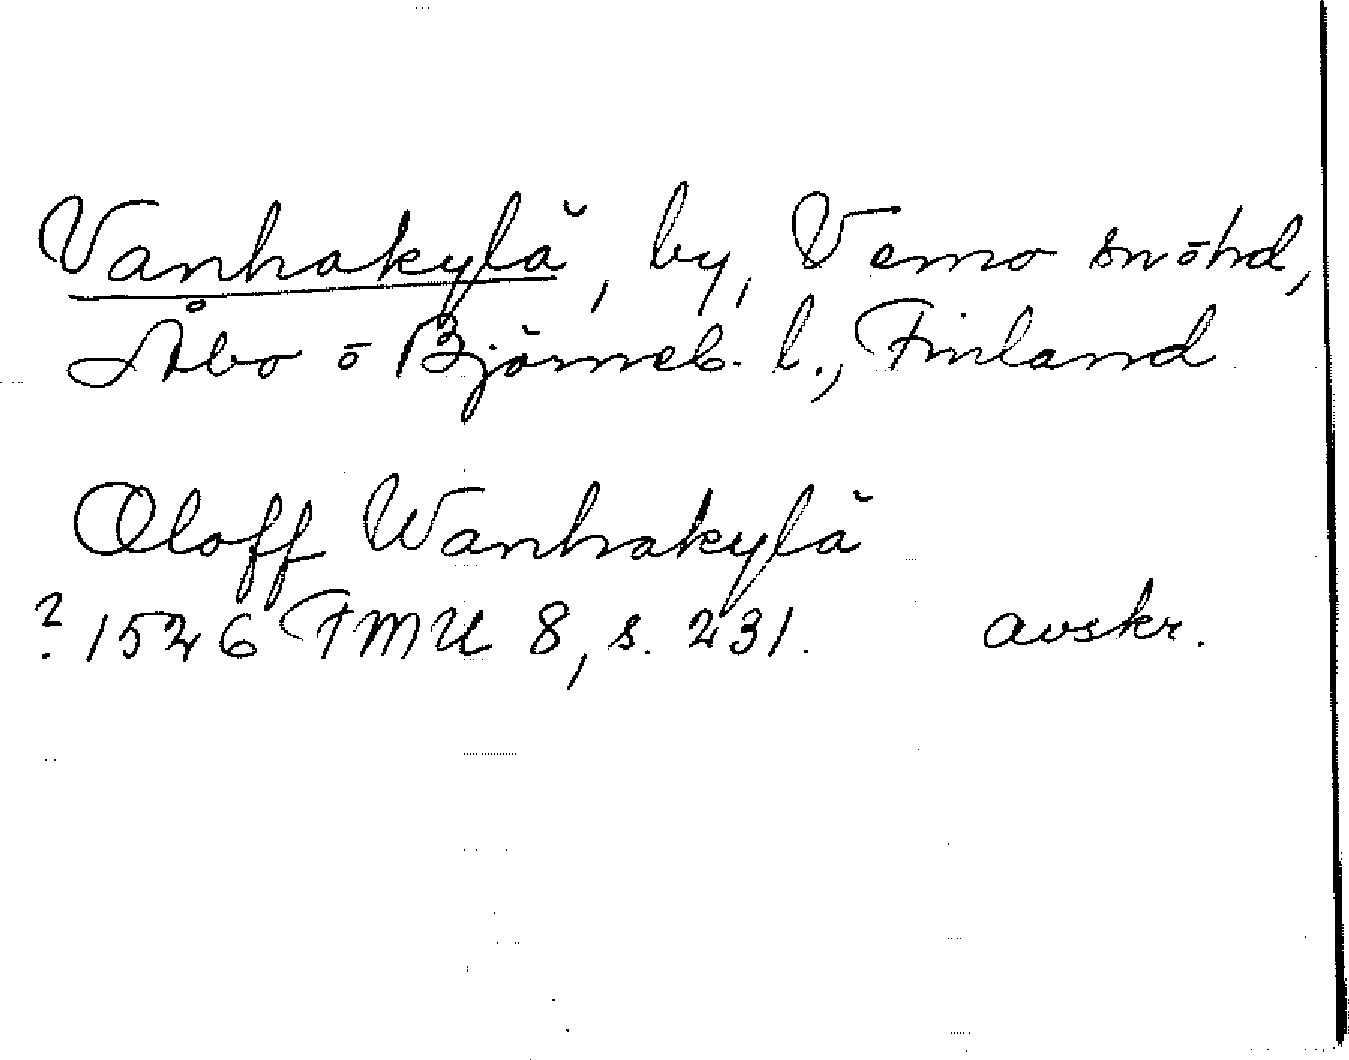 Vanhakylä, by, Vemo sn ō hd,
Åbo ō Björneb. l., Finland
Oloff Wanhakylä
? 1526 FMU 8, s. 231. avskr.